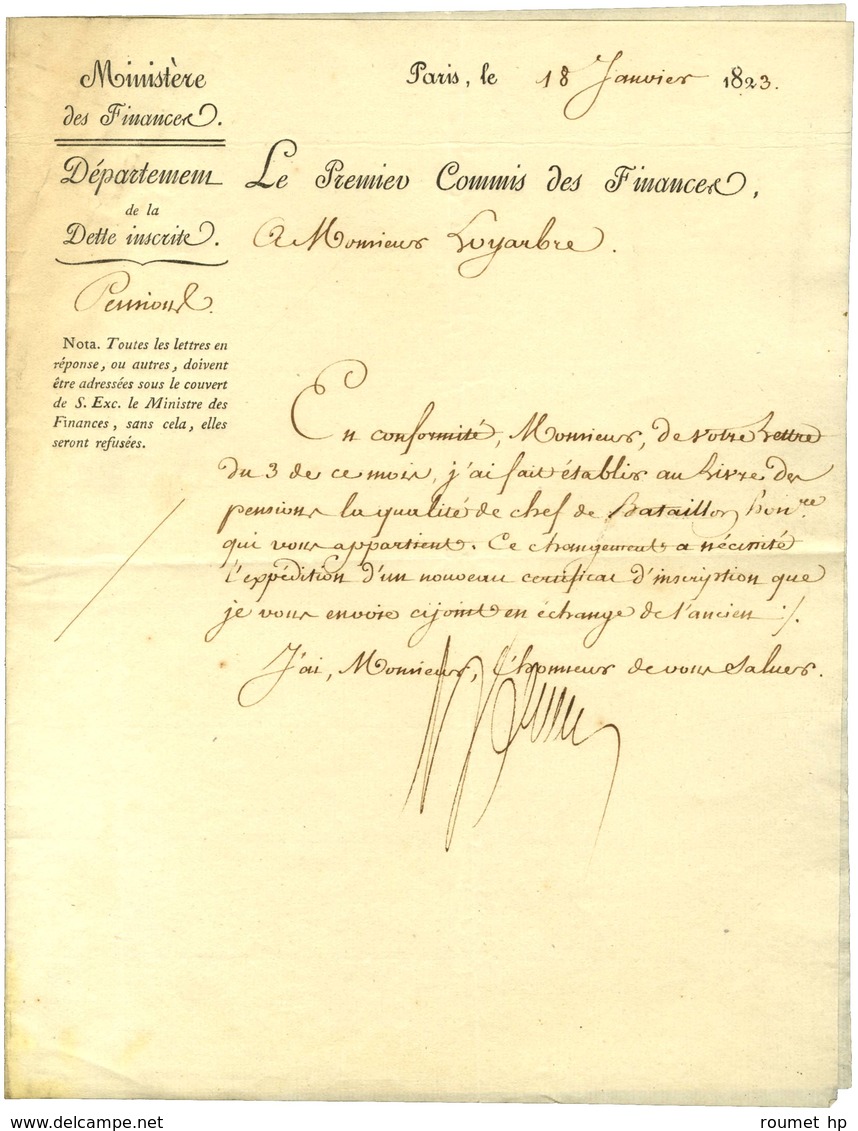 Ministère
des Finances.
Département
de la
Dette inscrite.
Pensions.
Nota. Toutes les lettres en
réponse, ou autres, doivent
être adressées sous le couvert
de S. Exc. le Ministre des
Finances, sans cela, elles
seront refusées.
Paris, le 18 Janvier 1823.
Le Premier Commis des Finances,
A Monsieur Luyarbre.
En conformité, Monsieur, de votre Lettre
du 3 de ce mois, j'ai fait établir au Livre des
pensions la qualité de chef de Bataillon hon.re
qui vous appartient. Ce changement a nécessité
l'expédition d'un nouveau certificat d'inscription que
je vous envoie cijoint en échange de l'ancien ./.
J'ai, Monsieur, l'honneur de vous saluer.
delcampe.net
roumet hp